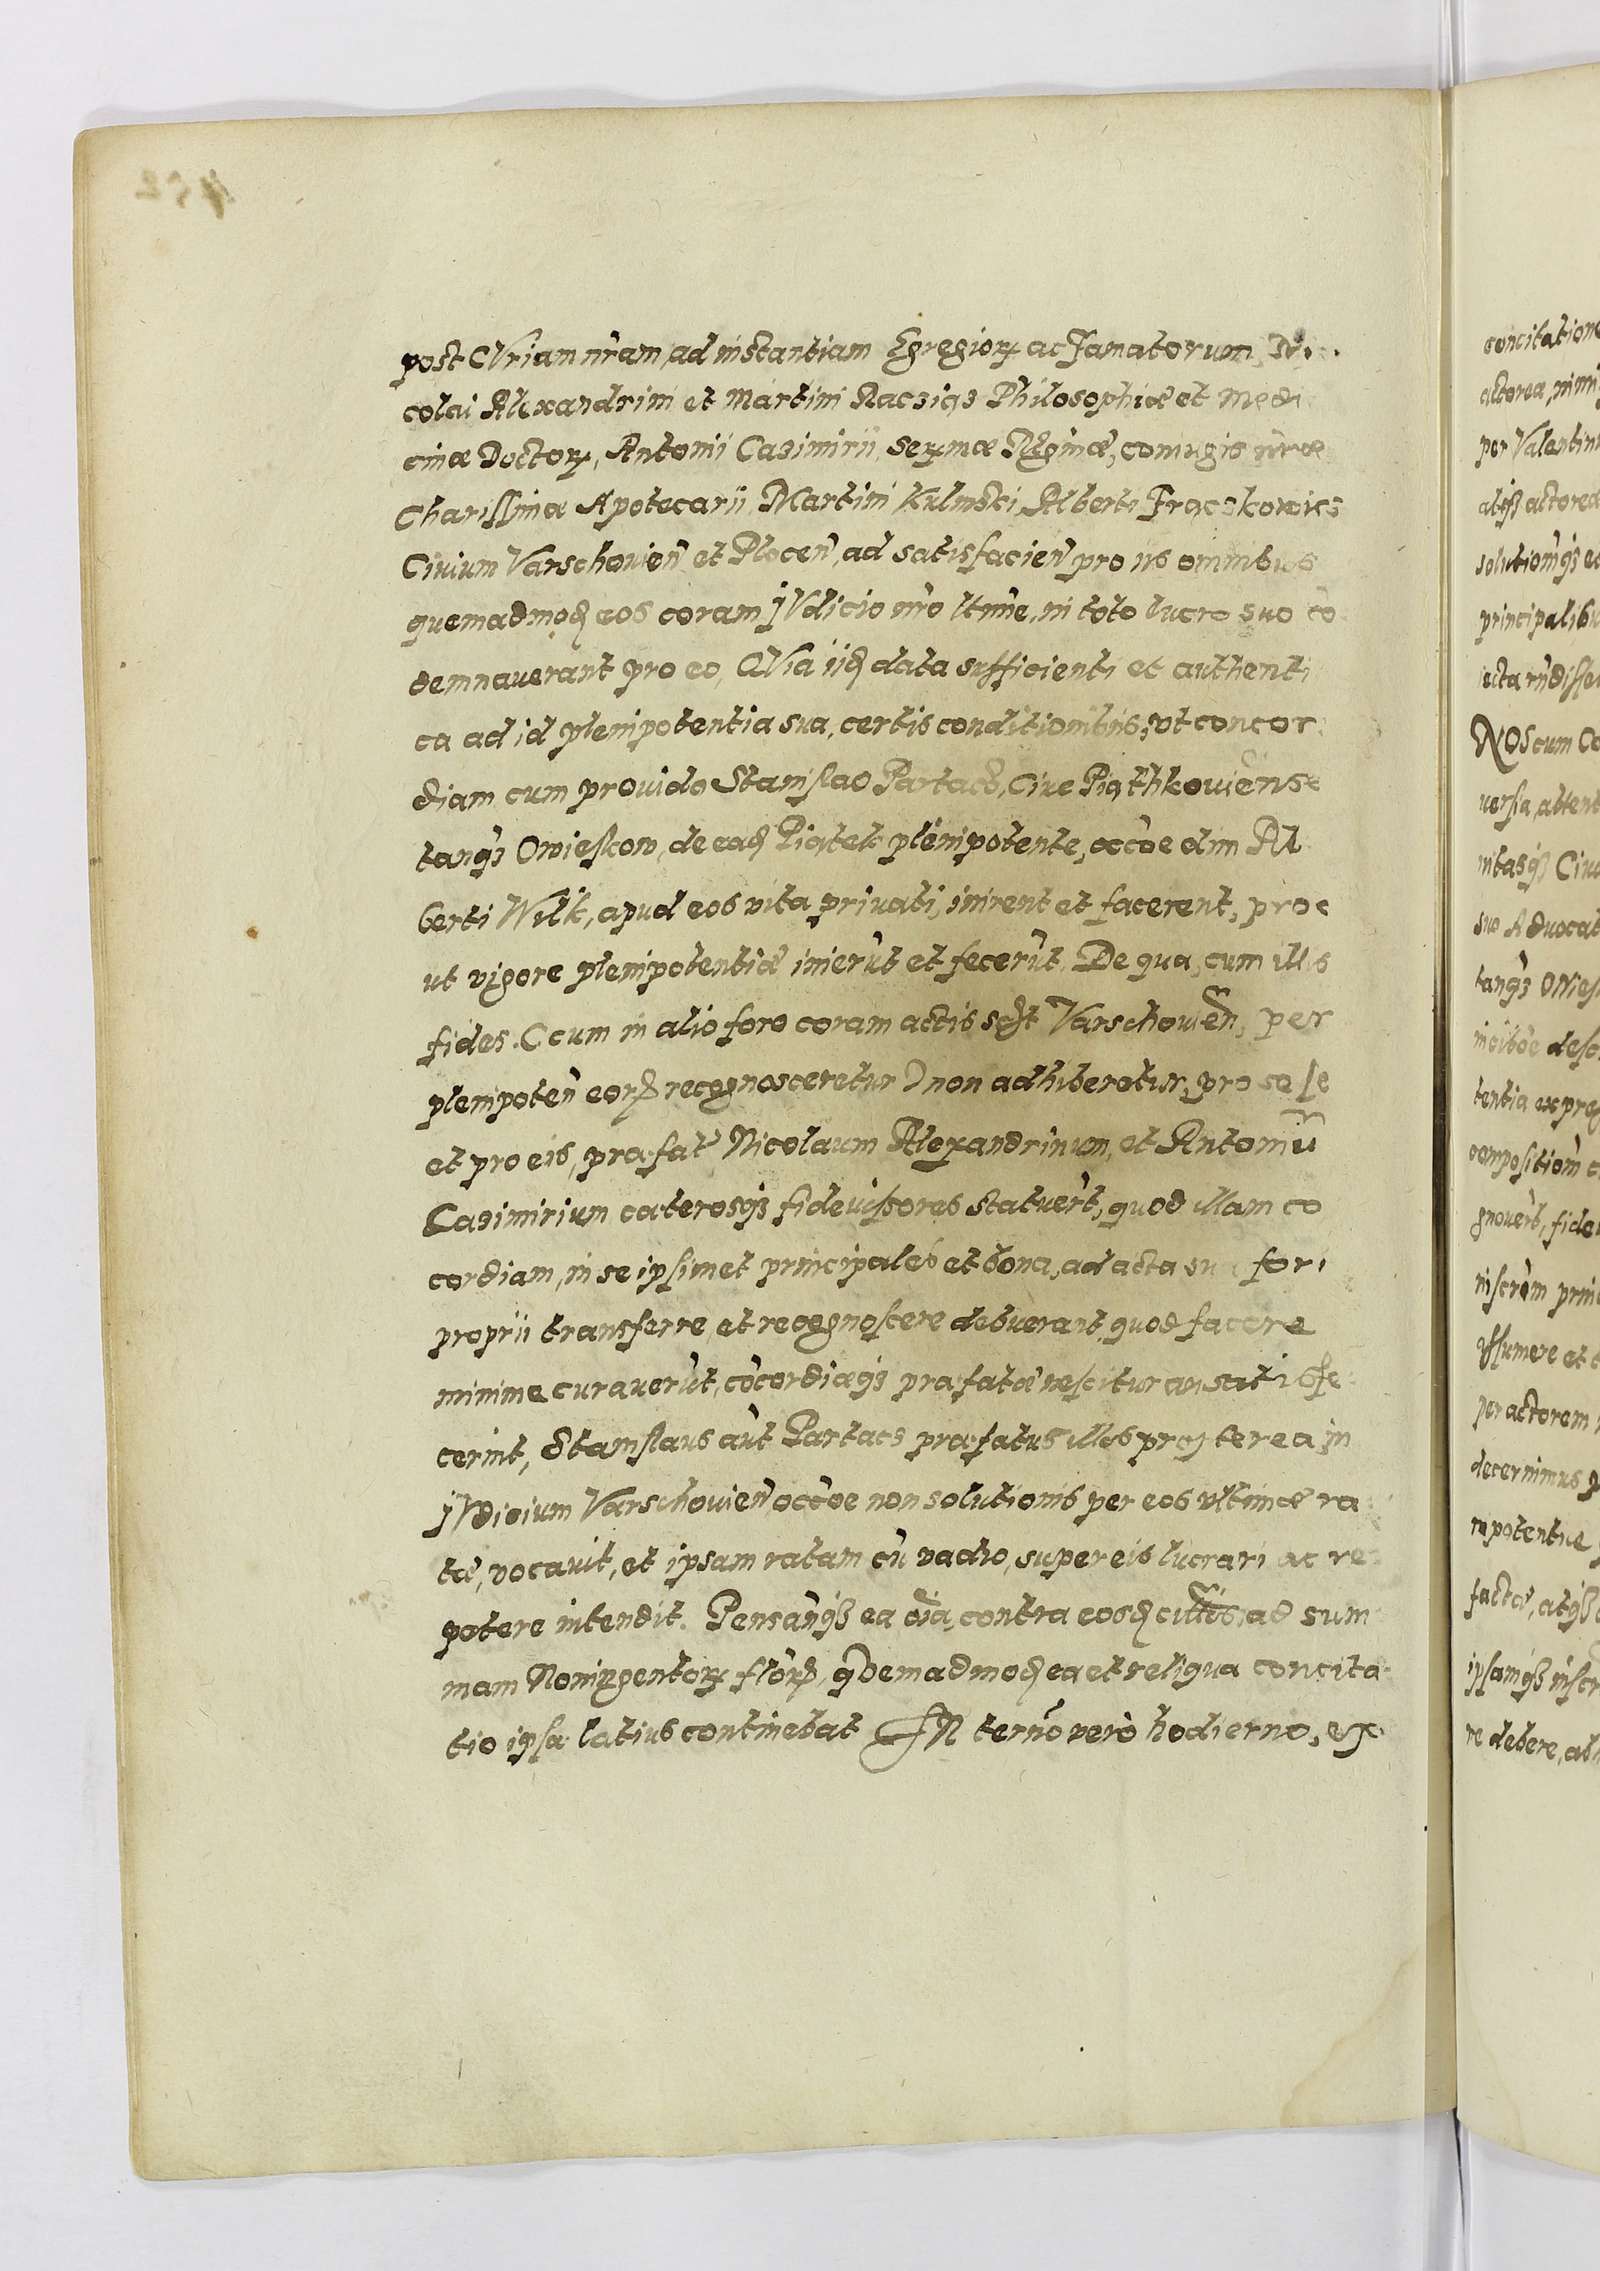 post CVriam nr̃am, ad instantiam Egregioꝝ ac Famatorum, Ni
colai Alexandrini et Martini Raczięz Philosophiæ et Medi
cinæ Doctoꝝ, Antonii Casimirii, Serꝫmæ Rg̃inæ, coniugis nr̃æ
Charissimæ Apotecarii, Martini Kulinski, Alberti Frączkowicz
Ciuium Varschouien̄ et Plocen̄, ad satisfacien̄ pro iis omnibus
quemadmoꝗ eos coram JVdicio nr̃o ltm̃e, in toto lucro suo cõ
demnauerant pro eo, QVia iiꝗ data sufficienti et authenti
ca ad id plenipotentia sua, certis conditionibus, vt concor
diam cum prouido Stanislao Partacz, Ciue Piąthkouiense
tanqꝫ Owieskow, de eaꝗ Piątek plenipotente, occõe olim Al
berti Wilk, apud eos vita priuati, inirent et facerent, pro
ut vigore plenipotentiæ inierũt et fecerũt. De qua, cum illis
fides (cum in alio foro coram actis Varschouien̄, per
plenipoten̄ eorꝗ recognosceretur) non adhiberetur, pro se
et pro eis, præfat Nicolaum Alexandrinum, et Antoniũ
Casimirium cæterosqꝫ fideiussores statuerũt, quod illam cõ
cordiam, in se ipsimet principales et bona, ad acta fori
proprii transferre, et recognoscere debuerant, quod facere
minime curauerũt, cõcordiæqꝫ præfatæ nescitur an satisfe
cerint, Stanislaus aũt Partacz præfatus illos propterea in
JVdicium Varschouien̄ occõe non solutionis per eos vltimæ ra
tæ, vocauit, et ipsam ratam cũ vadio, super eis lucrari ac re
petere intendit. Pensanqꝫ ea oĩa, contra eosꝗ ciues, ad sum
mam Noningentoꝝ florꝗ, qVemadmoꝗ ea et reliqua concita
tio ipsa latius continebat IN terno vero hodierno, ex
concitatione
actorea, nimi
per Valentin
actorea
solutionqꝫ
principalibu
NOS cum Co
uersia, attent
Ciui
suo Aduocat
tanqꝫ OWies
tentia expres
compositiom̃
gnouerũt, fide
inscrõm prin
Assumere et
per actorem
decernimus
potentiæ
factæ, atqꝫ
ipsamqꝫ inscr
re debere, ab